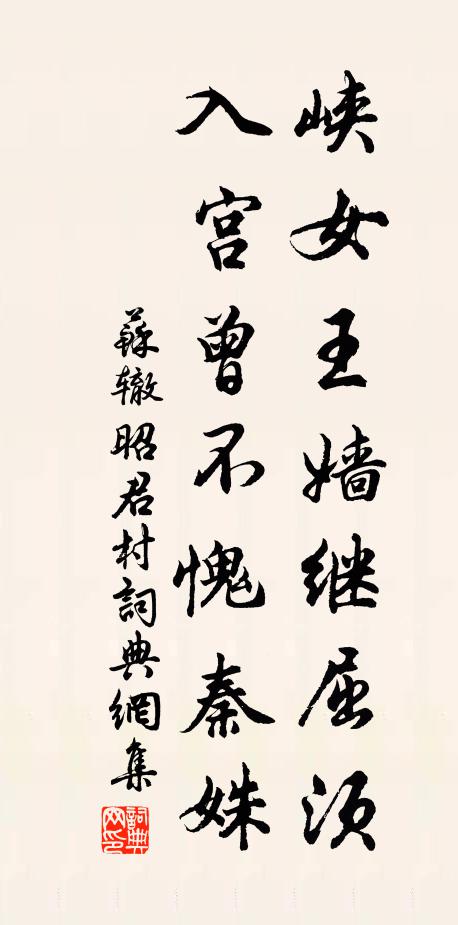 峡女王嫱继屈须
入宫曾不愧秦姝
蘇辙昭君村詞典網集
詞典网印